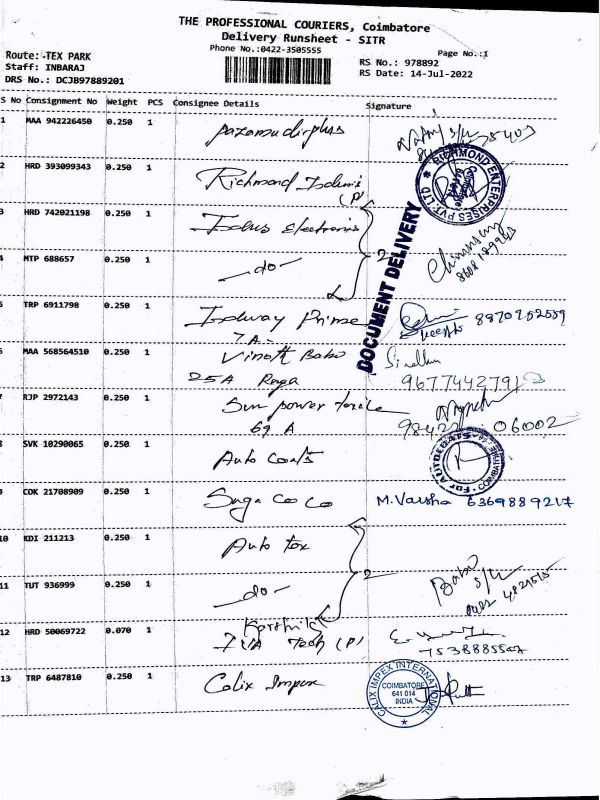 THE PROFESSIONAL COURIERS, Coimbatore
Delivery Runsheet - SITR
Phone No.:0422-3505555
Page No.:1
Route: TEX PARK
Staff: INBARAJ
DRS No.: DCJB97889201
RS No.: 978892
RS Date: 14-Jul-2022
S No Consignment No Weight PCS Consignee Details Signature
1 MAA 942226450 0.250 1
2 HRD 393099343 0.250 1 Richmond
RICHMOND ENTERPRISES PVT. LTD
3 HRD 742021198 0.250 1 Indus Electronis
DOCUMENT DELIVERY
4 MTP 688657 0.250 1 -do- 2
5 TRP 6911798 0.250 1 Indway Prime 8870952559
7A-
6 MAA 568564510 0.250 1 Vinoth Babo
25A Raga 9677442791
7 RJP 2972143 0.250 1 Sun power
69 A 98422 06002
8 SVK 10290065 0.250 1 Auto Coats
FOR AUTOCOATS COIMBATORE
9 COK 21708909 0.250 1 Suga Co Co M. Varsha 6369889217
10 KDI 211213 0.250 1 Auto tex
11 TUT 936999 0.250 1 -do- 2
Karthik
12 HRD 50069722 0.070 1 Tech (P)
13 TRP 6487810 0.250 1 Calix Impex
CALIX IMPEX INTERNATIONAL
COIMBATORE
641 014
INDIA